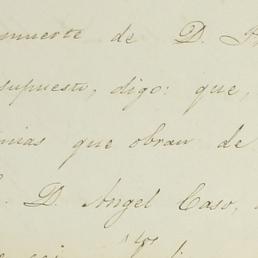 muerte de D. 
supuesto, digo: que,
que obran de
D. Angel Caso,